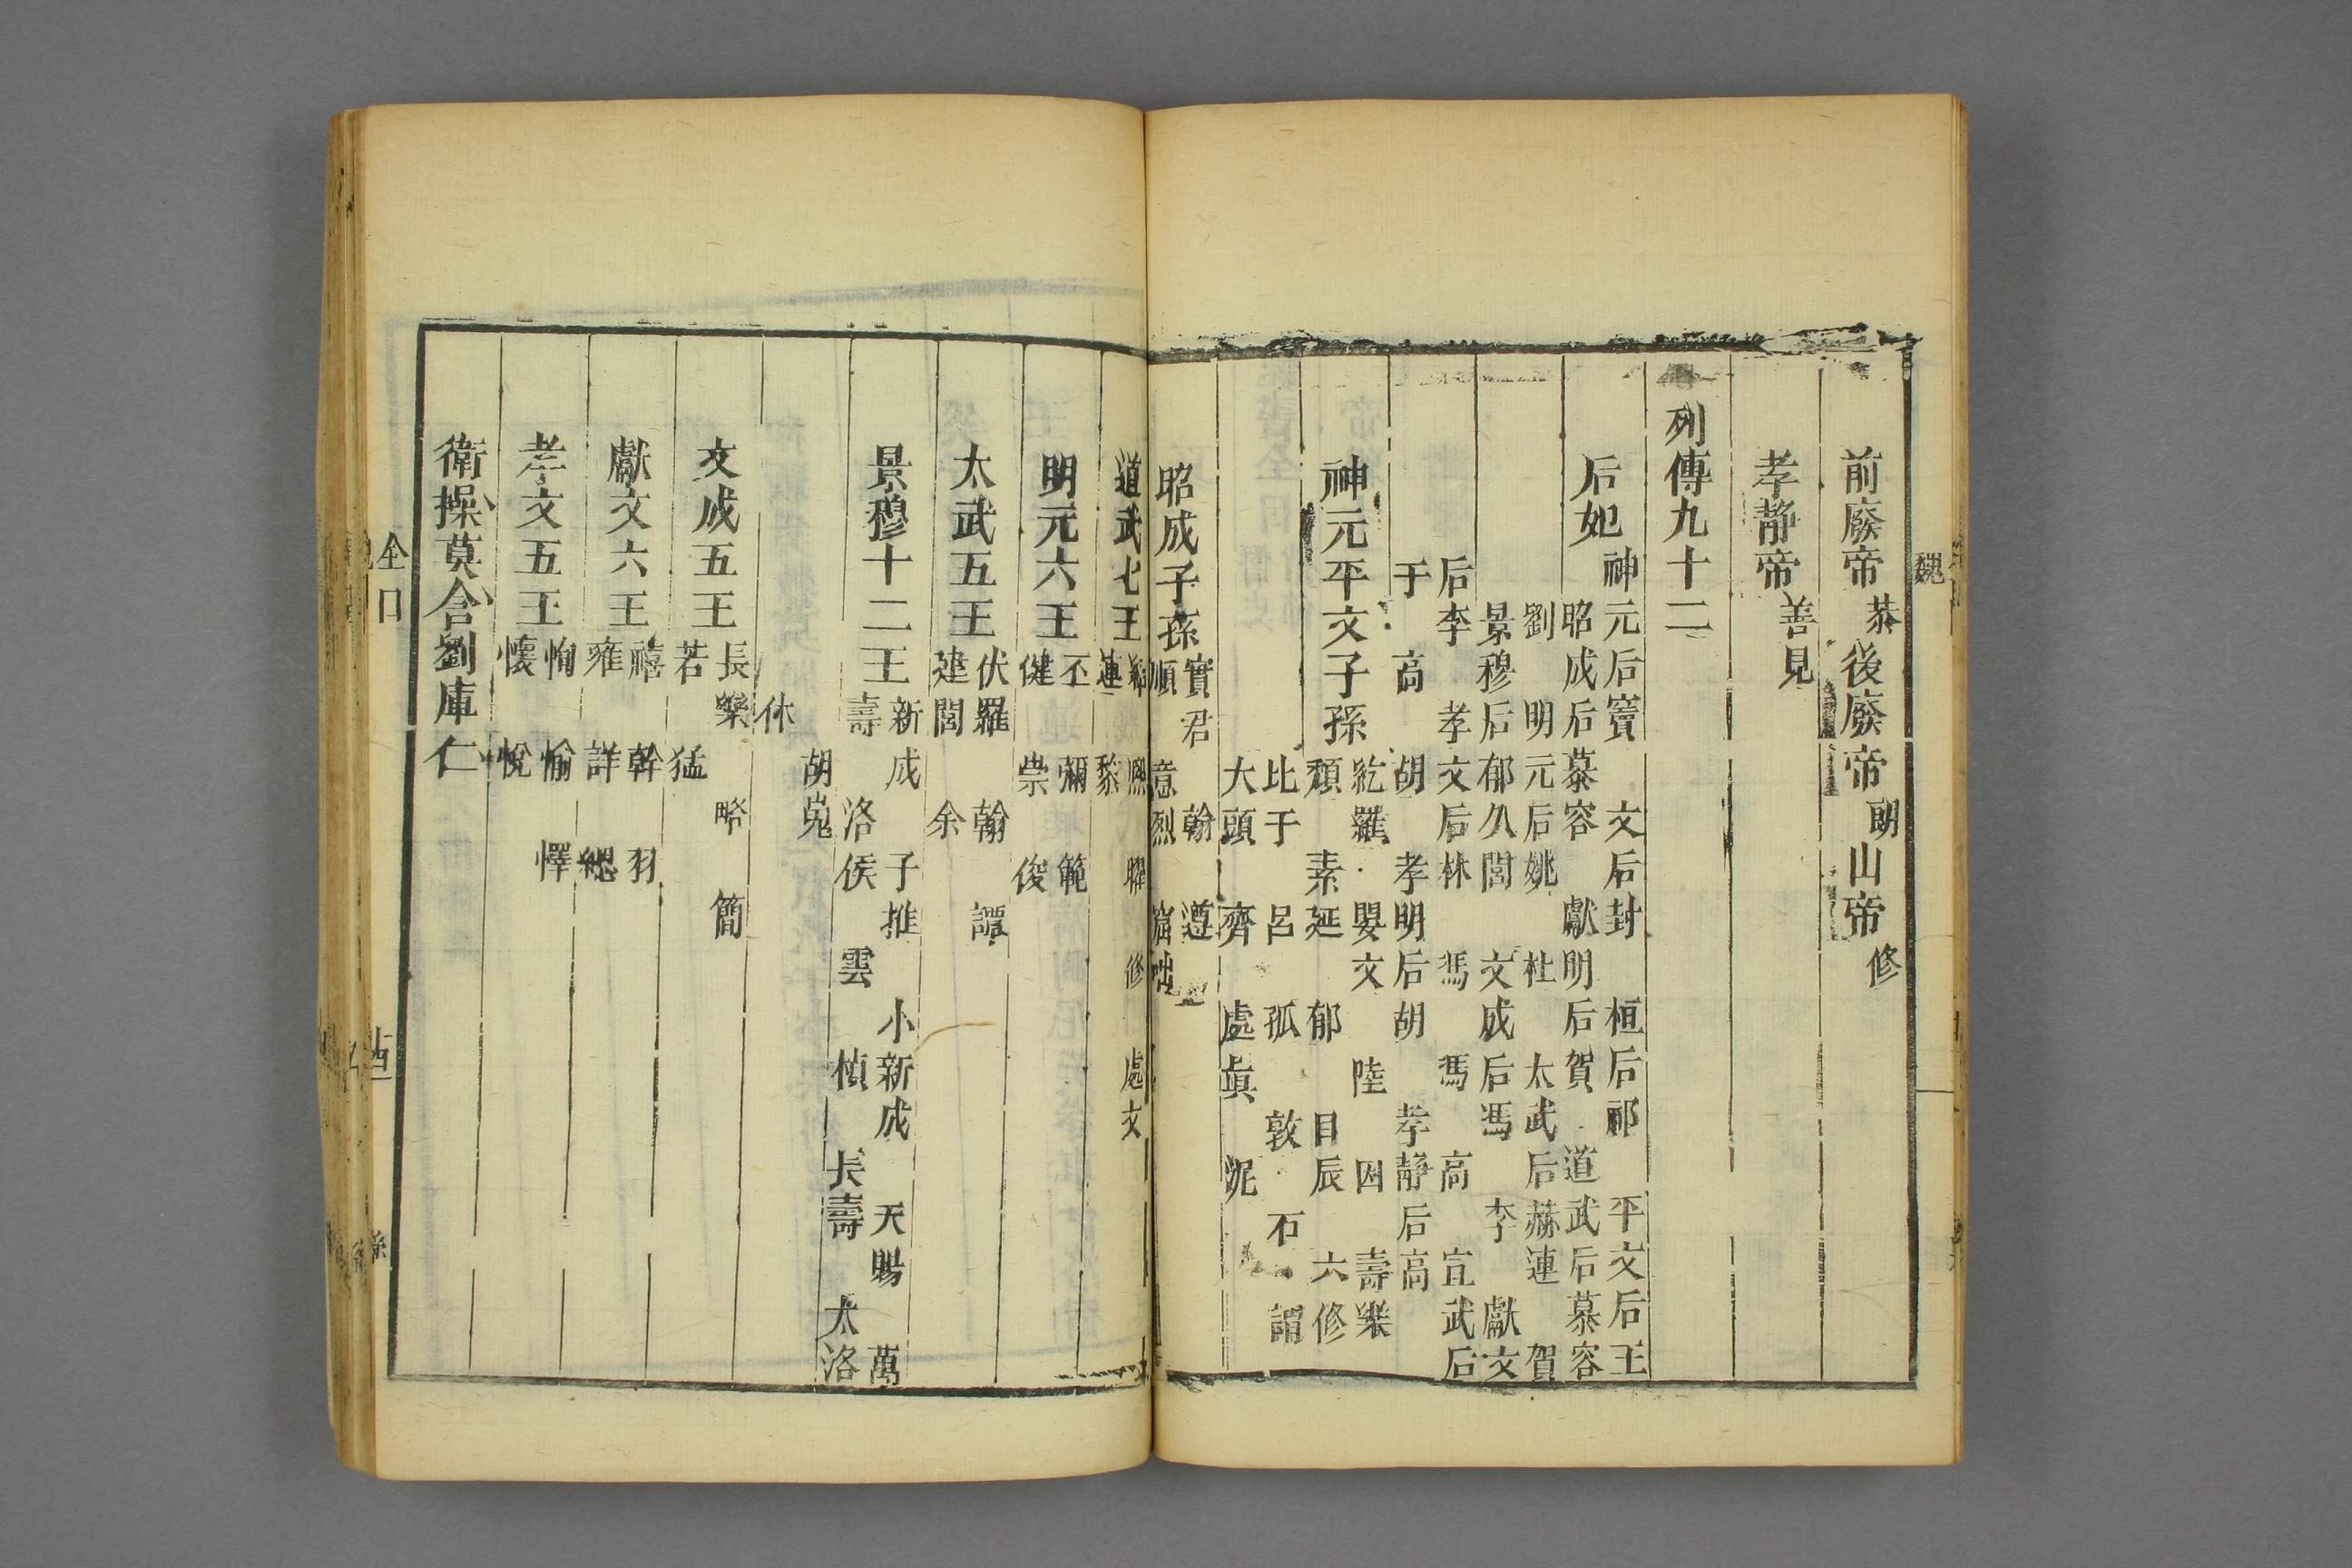 前廢帝恭後廢帝朗山帝修
孝静帝善見
列傳九十二
后妃
神元后竇 文后封 桓后祁 平文后王
昭成后慕容 獻明后賀 道武后慕容
劉 明元后姚 杜 太武后赫連 賀
景穆后郁久閭 文成后馮 李 獻文
后李 孝文后林 馮 馮 高 宣武后
于 高 胡 孝明后胡 孝静后高
神元平文子孫
紇羅 嬰文 陸 因 壽樂
頹 素延 郁 目辰 六修
比于 呂 孤 敦 石 謂
大頭 齊 處眞 泥
昭成子孫
實君 翰 遵
順 意烈 窟咄
道武七王
熙 曜 修 處文
連 黎
明元六王
丕 彌 範
健 崇 俊
太武五王
伏羅 翰 譚
建閭 余
景穆十二王
新成 子推 小新成 天賜 萬
壽 洛侯 雲 楨 長壽 太洛
胡嵬
休
文成五王
長樂 略 簡
若 猛
獻文六王
禧 幹 羽
雍 詳 總
孝文五王
恂 愉 懌
懷 悅
衛操莫含劉庫仁
魏
全